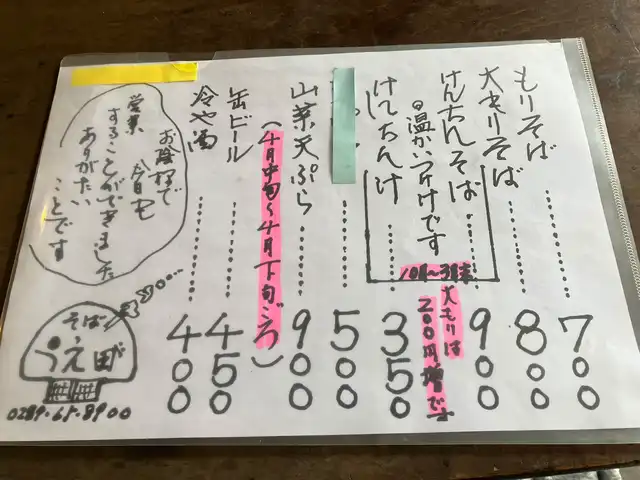 もりそば 700
大もりそば 800
けんちんそば 900
◎温かいつけです
大もりは200円増です
けんちん汁 350
10月〜3月末
500
山菜天ぷら 900
(4月中旬〜4月下旬ごろ)
缶ビール 450
冷や酒 400
お陰様で
今日も
営業
することができました
ありがたい
ことです
そば
うえ田
0289.65.8900